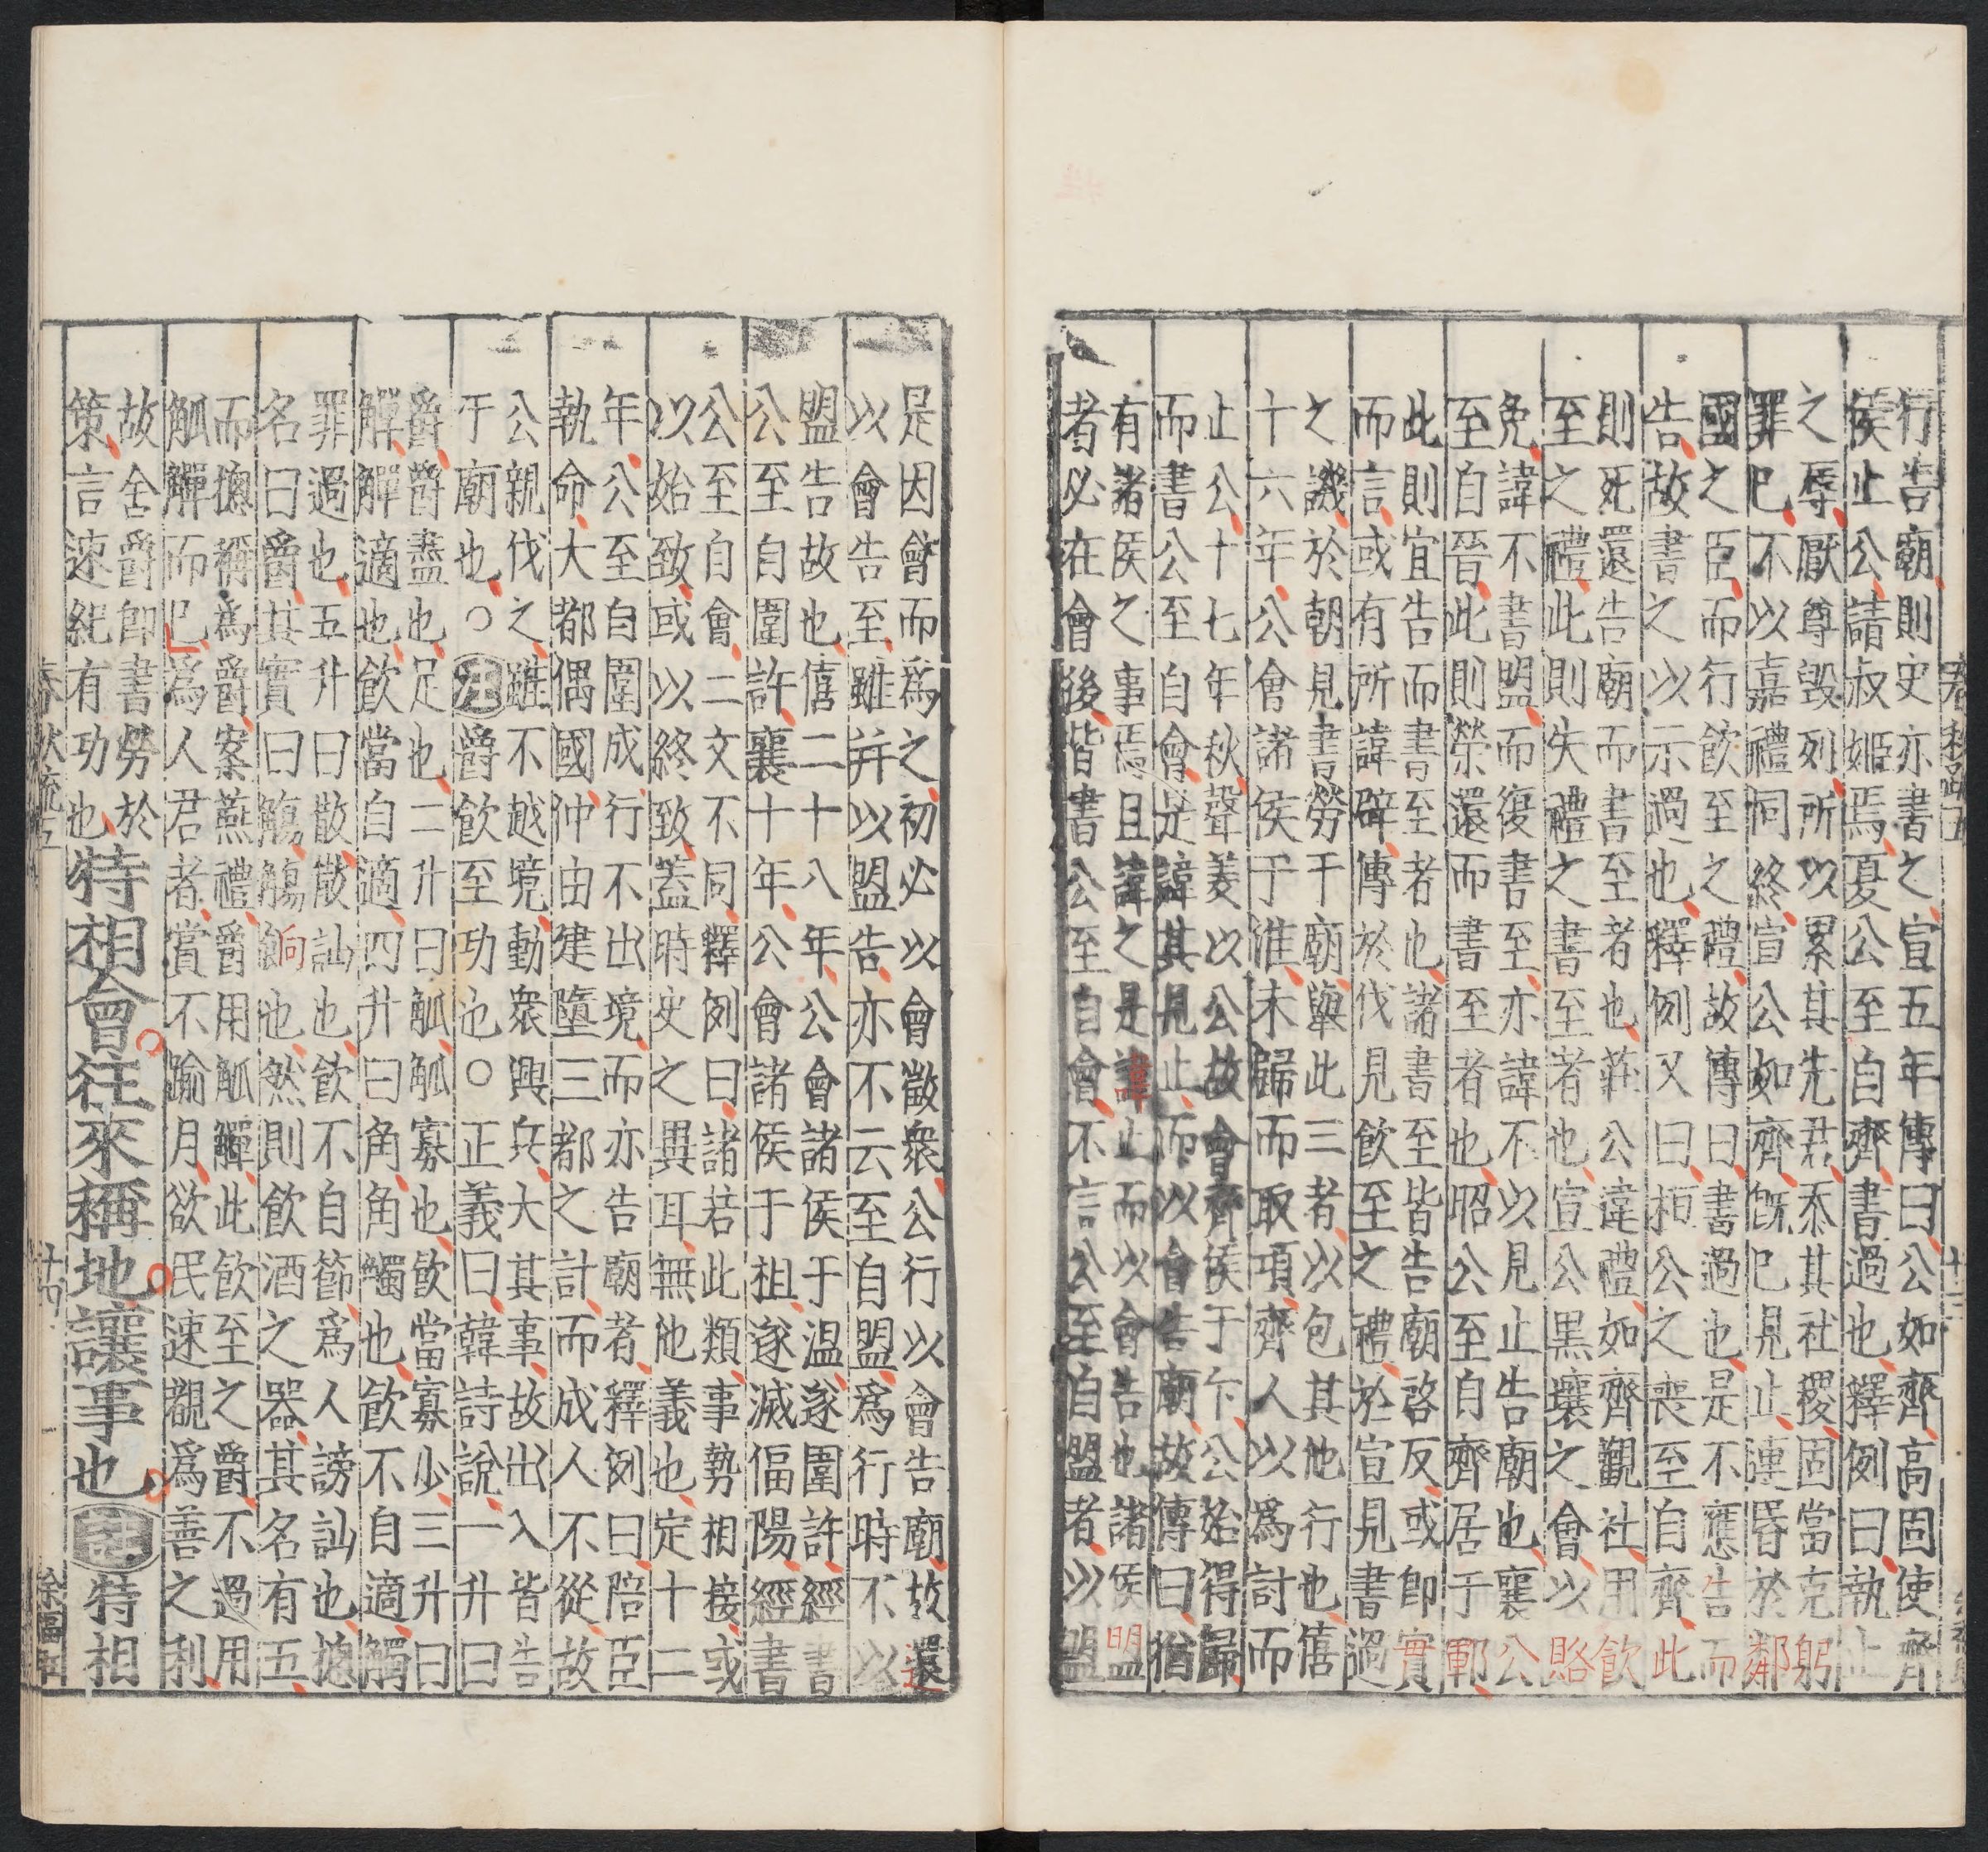 行告廟則史亦書之宣五年傳曰公如齊高固使齊
侯止公請叔姬焉夏公至自齊書過也釋例曰執止
之辱厭尊毀列所以累其先君忝其社稷固當克躬
罪已不以嘉禮同終宣公如齊旣已見止連昏於鄰
國之臣而行飲至之禮故傳曰書過也是不應告而
告故書之以示過也釋例又曰桓公之喪至自齊此
則死還告廟而書至者也莊公違禮如齊觀社用飲
至之禮此則失禮之書至者也宣公黑壤之會以賂
免諱不書盟而復書至亦諱不以見止告廟也襄公
至自晉此則榮還而書至者也昭公至自齊居于鄆
此則宜告而書至者也諸書至皆告廟啓反或即實
而言或有所諱辟傳於伐見飲至之禮於宣見書過
之譏於朝見書勞于廟舉此三者以包其他行也僖
十六年公會諸侯于淮未歸而取項齊人以爲討而
止公十七年秋聲姜以公故會齊侯于卞公始得歸
而書公至自會是諱其見止而以會告廟故傳曰猶
有諸侯之事焉且諱之是諱止而以會告也諸侯盟
者必在會後皆書公至自會不言公至自盟者以盟
是因會而爲之初必以會徵衆公行以會告廟故還
以會告至雖并以盟告亦不云至自盟爲行時不以
盟告故也僖二十八年公會諸侯于溫遂圍許經書
公至自圍許襄十年公會諸侯于柤遂滅偪陽經書
公至自會二文不同釋例曰諸若此類事勢相接或
以始致或以終致蓋時史之異耳無他義也定十二
年公至自圍成行不出境而亦告廟者釋例曰陪臣
執命大都偶國仲由建墮三都之計而成人不從故
公親伐之雖不越境動衆興兵大其事故出入皆告
于廟也○注爵飲至功也○正義曰韓詩說一升曰
爵爵盡也足也二升曰觚觚寡也飲當寡少三升曰
觶觶適也飲當自適四升曰角角觸也飲不自適觸
罪過也五升曰散散訕也飲不自節爲人謗訕也摠
名曰爵其實曰觴觴餉也然則飲酒之器其名有五
而摠稱爲爵案燕禮爵用觚觶此飲至之爵不過用
觚觶而已爲人君者賞不踰月欲民速覩爲善之利
故舍爵即書勞於
策言速紀有功也特相會往來稱地讓事也注特相
春秋疏五
十四